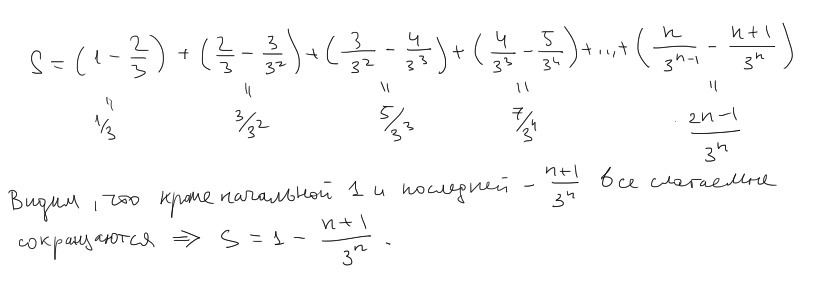 S = (1 - 2/3) + (2/3 - 3/3²) + (3/3² - 4/3³) + (4/3³ - 5/3⁴) + ... + (n/3ⁿ⁻¹ - (n+1)/3ⁿ)
॥ ॥ ॥ ॥ ॥
1/3 3/3² 5/3³ 7/3⁴ (2n-1)/3ⁿ
Видим, что кроме начальной 1 и последней - (n+1)/3ⁿ все слагаемые
сокращаются ⇒ S = 1 - (n+1)/3ⁿ.